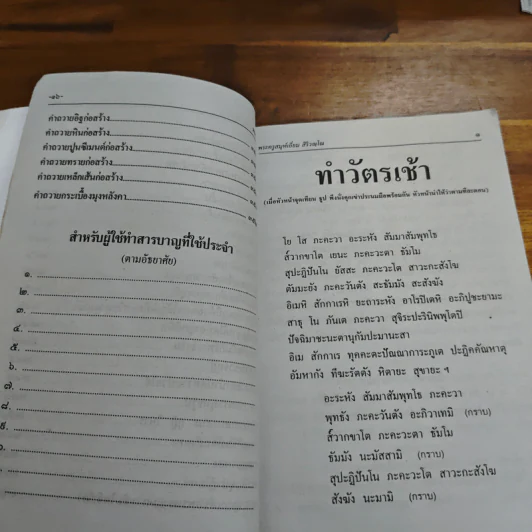 -๑๖-
คำถวายอิฐก่อสร้าง
คำถวายหินก่อสร้าง
คำถวายปูนซีเมนต์ก่อสร้าง
คำถวายทรายก่อสร้าง
คำถวายเหล็กเส้นก่อสร้าง
คำถวายกระเบื้องมุงหลังคา
สำหรับผู้ใช้ทำสารบาญที่ใช้ประจำ
(ตามอัธยาศัย)
๑.
๒.
๓.
๔.
๕.
๖.
๗.
๘.
๙.
๑
ทำวัตรเช้า
โย โส ภะคะวา อะระหัง สัมมาสัมพุทโธ
ส๎วากขาโต เยนะ ภะคะวะตา ธัมโม
สุปะฏิปันโน ยัสสะ ภะคะวะโต สาวะกะสังโฆ
ตัมมะยัง ภะคะวันตัง สะธัมมัง สะสังฆัง
อิเมหิ สักกาเรหิ ยะถาระหัง อาโรปิเตหิ อะภิปูชะยามะ
สาธุ โน ภันเต ภะคะวา สุจิระปะรินิพพุโตปิ
ปัจฉิมาชะนะตานุกัมปะมานะสา
อิเม สักกาเร ทุคคะตะปัณณาการะภูเต ปะฏิคคัณหาตุ
อัมหากัง ทีฆะรัตตัง หิตายะ สุขายะ ฯ
อะระหัง สัมมาสัมพุทโธ ภะคะวา
พุทธัง ภะคะวันตัง อะภิวาเทมิ (กราบ)
ส๎วากขาโต ภะคะวะตา ธัมโม
ธัมมัง นะมัสสามิ (กราบ)
สุปะฏิปันโน ภะคะวะโต สาวะกะสังโฆ
สังฆัง นะมามิ (กราบ)